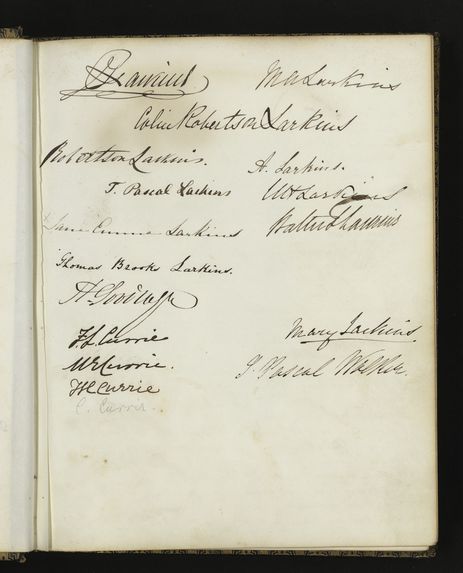 M A Larkins
Colin Robertson Larkins
Robertson Larkins.
A. Larkins.
T. Pascal Larkins
W Larkins
Jane Emma Larkins
Thomas Brooks Larkins.
F L Currie
Mary Larkins.
M E Currie.
J. Pascal Walker.
F H Currie
C. Currie.